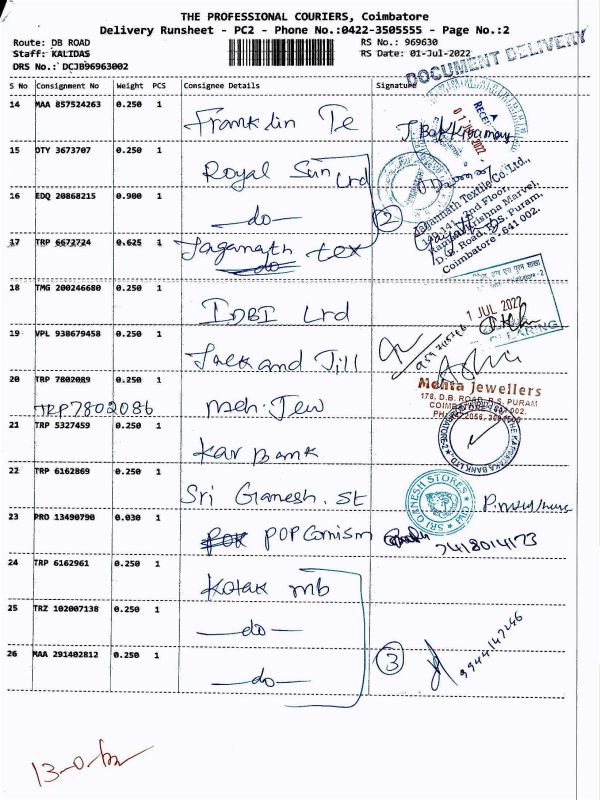 THE PROFESSIONAL COURIERS, Coimbatore
Delivery Runsheet - PC2 - Phone No.:0422-3505555 - Page No.:2
Route: DB ROAD RS No.: 969630
Staff: KALIDAS RS Date: 01-Jul-2022
DRS No.: DCJB96963002
DOCUMENT DELIVERY
S No Consignment No Weight PCS Consignee Details Signature
14 MAA 857524263 0.250 1 Franklin Te
15 DTY 3673707 0.250 1 Royal Sun Lrd
16 EDQ 20868215 0.900 1 -do- 2
Jagannath Textile Co. Ltd.,
2nd Floor,
Krishna Marvel,
D.B. Road, R.S. Puram,
Coimbatore - 641 002.
17 TRP 6672724 0.625 1 Jaganath tex
18 TMG 200246680 0.250 1 IDBI Lrd
1 JUL 2022
CLEARING
19 VPL 938679458 0.250 1 Jack and Jill
20 TRP 7802089 0.250 1 Meh. Jew
TRP7802086
Mehta Jewellers
178, D.B. ROAD, R.S. PURAM
COIMBATORE 641 002.
21 TRP 5327459 0.250 1 Kar Bank
22 TRP 6162869 0.250 1 Sri Ganesh. St
SRI GANESH STORES
23 PRO 13490790 0.030 1 POP Comism 7418014173
24 TRP 6162961 0.250 1 Kotak mb
25 TRZ 102007138 0.250 1 -do-
26 MAA 291402812 0.250 1 -do- 3 9944147246